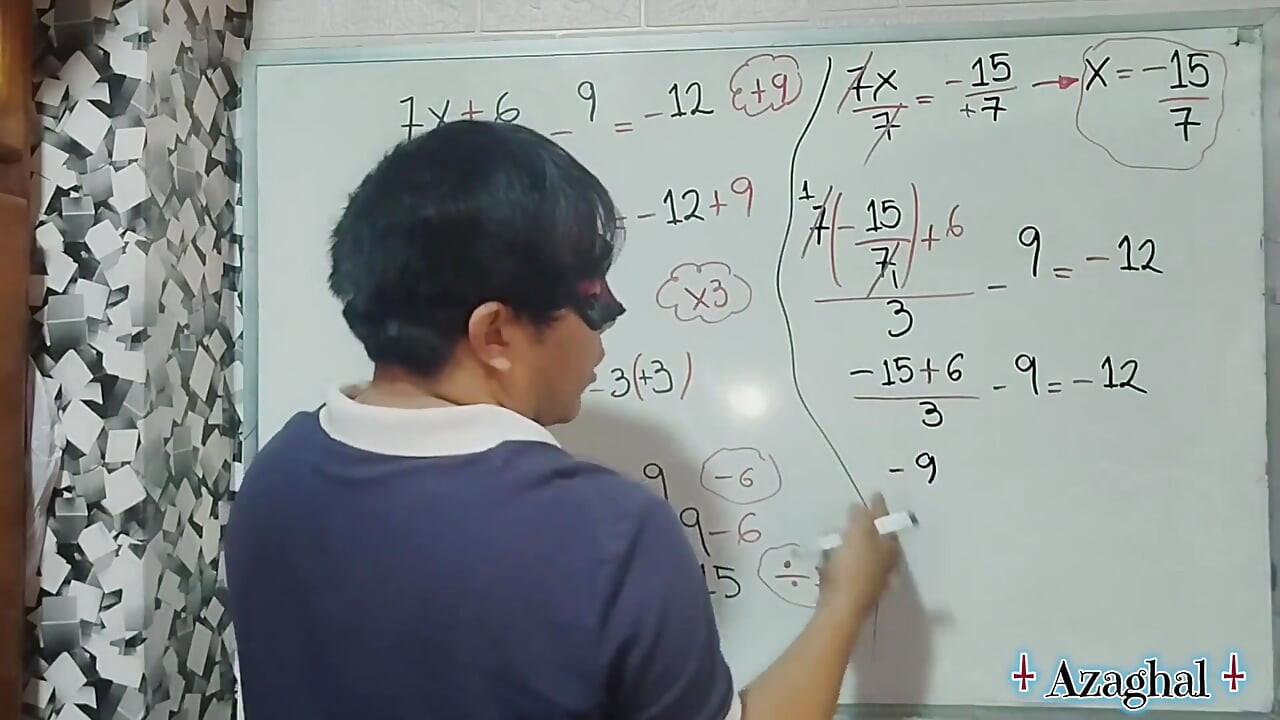 7x + 6 - 9 = -12 +9
= -12 + 9
x3
-3(+3)
9 -6
9 - 6
15 ÷
7x/7 = -15/+7 → x = -15/7
1
7(-15/7)+6/3 - 9 = -12
-15+6/3 - 9 = -12
-9
Azaghal